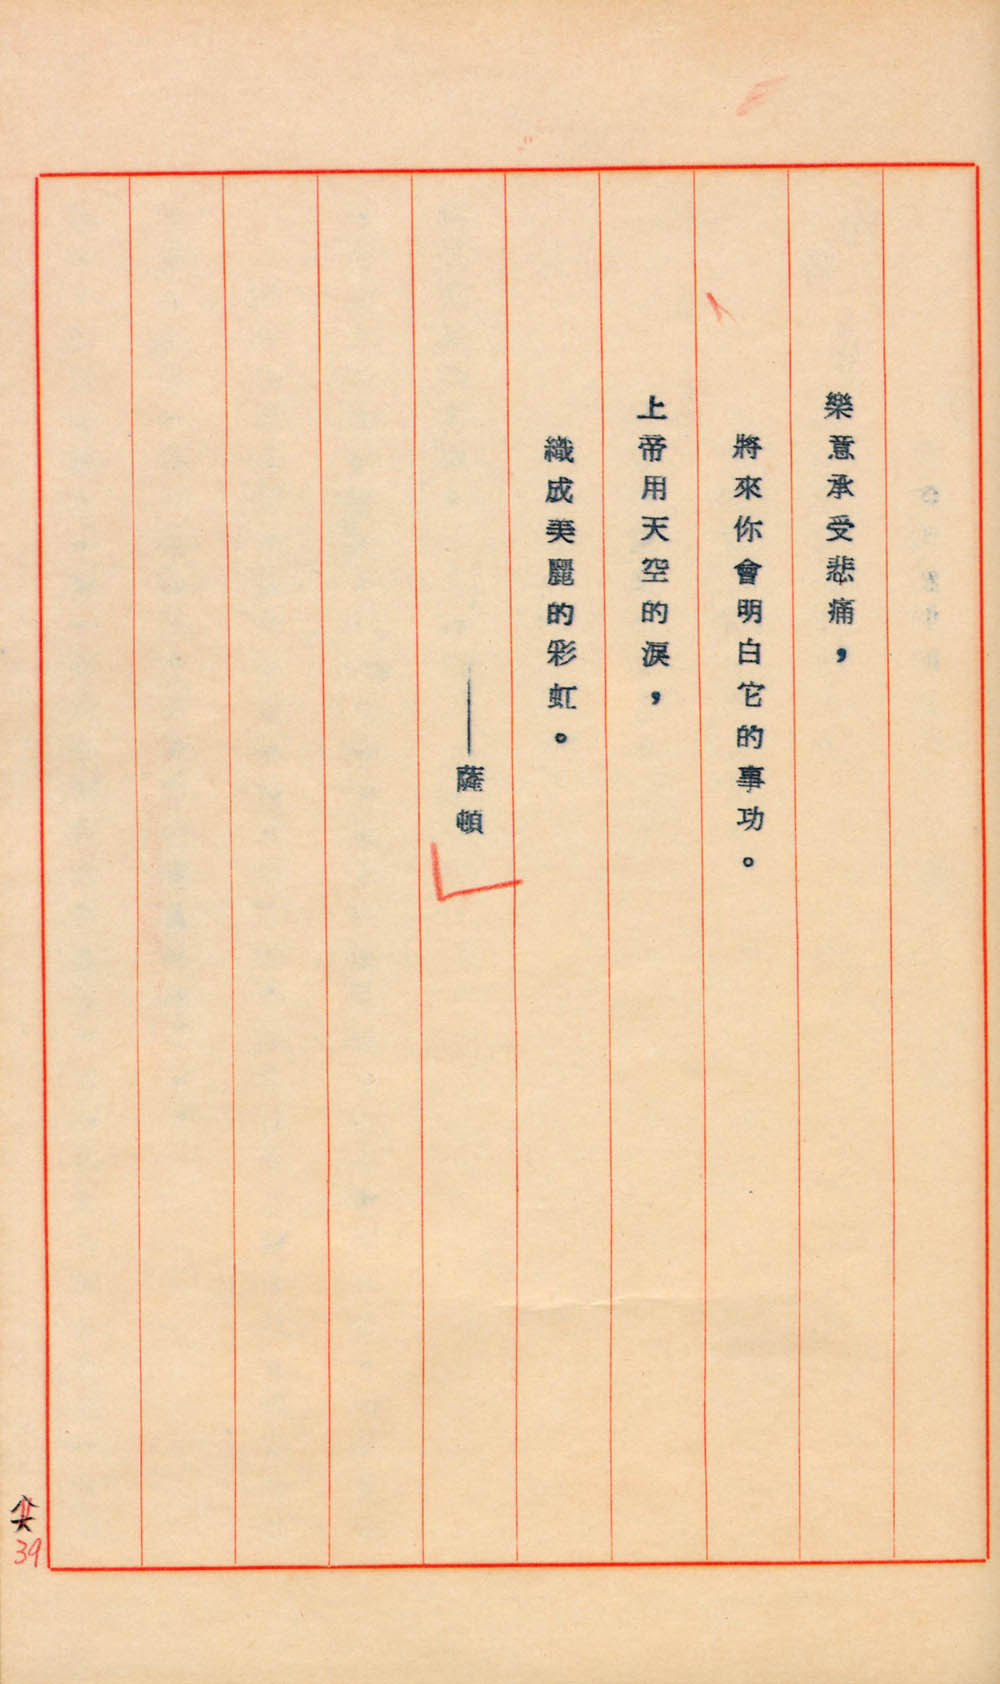 樂意承受悲痛，
將來你會明白它的事功。
上帝用天空的淚，
織成美麗的彩虹。
——薩頓
39